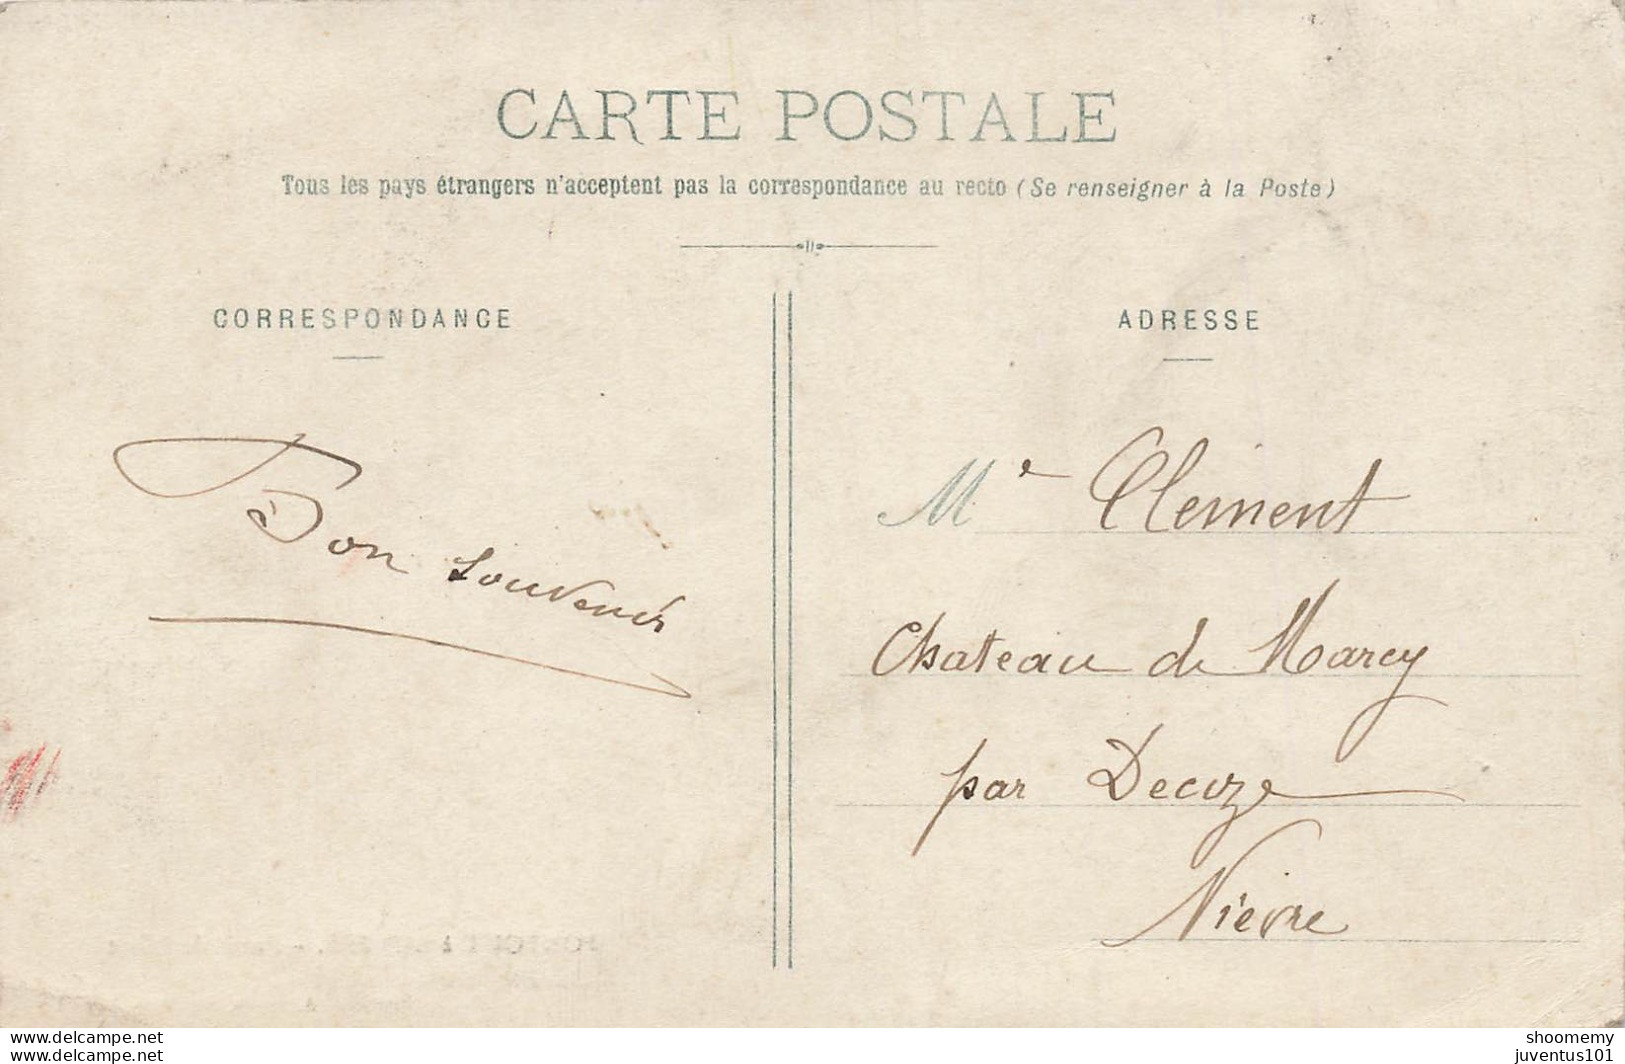 CARTE POSTALE
Tous les pays étrangers n'acceptent pas la correspondance au recto (Se renseigner à la Poste)
CORRESPONDANCE
Bon souvenir
ADRESSE
Me Clement
Chateau de Marcy
par Decize
Nièvre
www.delcampe.net
shoomemy
juventus101